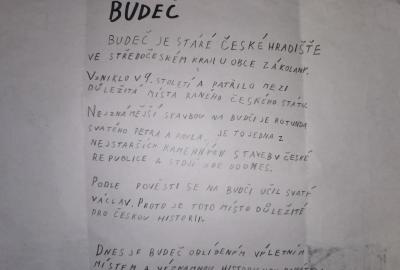 BUDEČ
BUDEČ JE STARÉ ČESKÉ HRADIŠTĚ
VE STŘEDOČESKÉM KRAJI U OBCE ZÁKOLANY.
VZNIKLO V 9. STOLETÍ A PATŘILO MEZI
DŮLEŽITÁ MÍSTA RANÉHO ČESKÉHO STÁTU.
NEJZNÁMĚJŠÍ STAVBOU NA BUDČI JE ROTUNDA
SVATÉHO PETRA A PAVLA. JE TO JEDNA Z
NEJSTARŠÍCH KAMENNÝCH STAVEB V ČESKÉ
REPUBLICE A STOJÍ ZDE DODNES.
PODLE POVĚSTI SE NA BUDČI UČIL SVATÝ
VÁCLAV. PROTO JE TOTO MÍSTO DŮLEŽITÉ
PRO ČESKOU HISTORII.
DNES JE BUDEČ OBLÍBENÝM VÝLETNÍM
MÍSTEM A VÝZNAMNOU HISTORICKOU